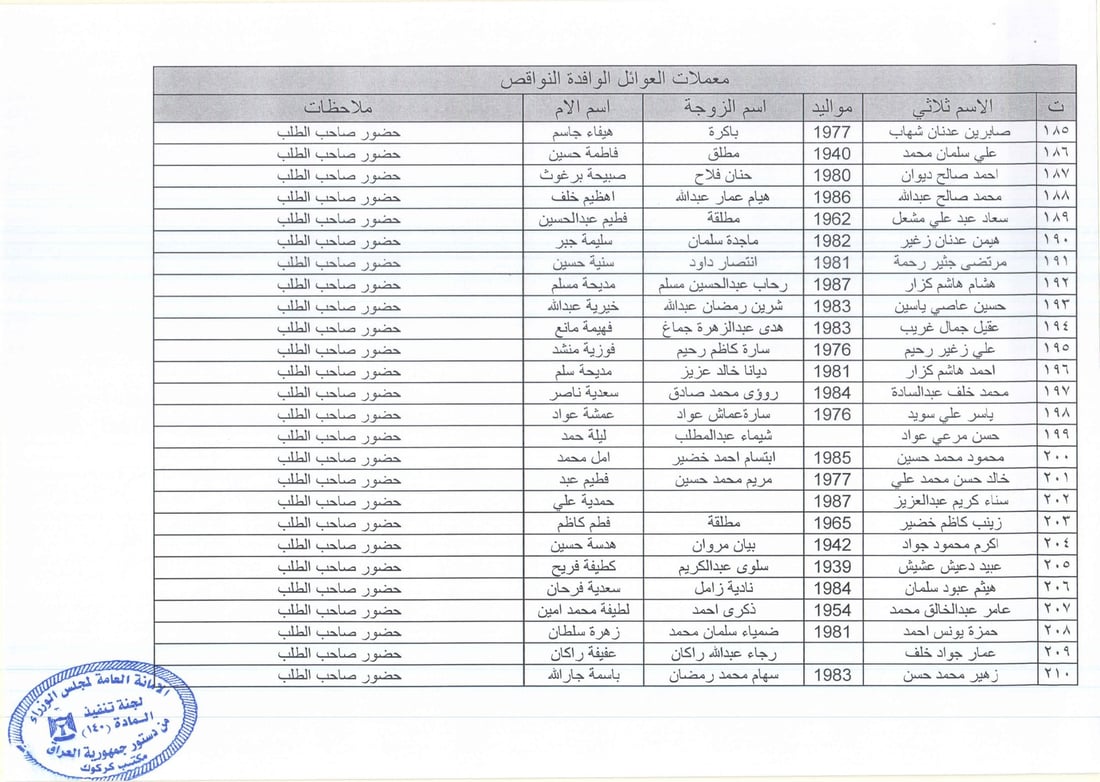 معملات العوائل الوافدة النواقص
ت الاسم ثلاثي مواليد اسم الزوجة اسم الام ملاحظات
١٨٥ صابرين عدنان شهاب 1977 باكرة هيفاء جاسم حضور صاحب الطلب
١٨٦ علي سلمان محمد 1940 مطلق فاطمة حسين حضور صاحب الطلب
١٨٧ احمد صالح ديوان 1980 حنان فلاح صبيحة برغوث حضور صاحب الطلب
١٨٨ محمد صالح عبدالله 1986 هيام عمار عبدالله اهظيم خلف حضور صاحب الطلب
١٨٩ سعاد عبد علي مشعل 1962 مطلقة فطيم عبدالحسين حضور صاحب الطلب
١٩٠ هيمن عدنان زغير 1982 ماجدة سلمان سليمة جبر حضور صاحب الطلب
١٩١ مرتضى جثير رحمة 1981 انتصار داود سنية حسين حضور صاحب الطلب
١٩٢ هشام هاشم كزار 1987 رحاب عبدالحسين مسلم مديحة مسلم حضور صاحب الطلب
١٩٣ حسين عاصي ياسين 1983 شرين رمضان عبدالله خيرية عبدالله حضور صاحب الطلب
١٩٤ عقيل جمال غريب 1983 هدى عبدالزهرة جماغ فهيمة مانع حضور صاحب الطلب
١٩٥ علي زغير رحيم 1976 سارة كاظم رحيم فوزية منشد حضور صاحب الطلب
١٩٦ احمد هاشم كزار 1981 ديانا خالد عزيز مديحة سلم حضور صاحب الطلب
١٩٧ محمد خلف عبدالسادة 1984 روؤى محمد صادق سعدية ناصر حضور صاحب الطلب
١٩٨ ياسر علي سويد 1976 سارةعماش عواد عمشة عواد حضور صاحب الطلب
١٩٩ حسن مرعي عواد شيماء عبدالمطلب ليلة حمد حضور صاحب الطلب
٢٠٠ محمود محمد حسين 1985 ابتسام احمد خضير امل محمد حضور صاحب الطلب
٢٠١ خالد حسن محمد علي 1977 مريم محمد حسين فطيم عبد حضور صاحب الطلب
٢٠٢ سناء كريم عبدالعزيز 1987 حمدية علي حضور صاحب الطلب
٢٠٣ زينب كاظم خضير 1965 مطلقة فطم كاظم حضور صاحب الطلب
٢٠٤ اكرم محمود جواد 1942 بيان مروان هدسة حسين حضور صاحب الطلب
٢٠٥ عبيد دعيش عشيش 1939 سلوى عبدالكريم كطيفة فريح حضور صاحب الطلب
٢٠٦ هيثم عبود سلمان 1984 نادية زامل سعدية فرحان حضور صاحب الطلب
٢٠٧ عامر عبدالخالق محمد 1954 ذكرى احمد لطيفة محمد امين حضور صاحب الطلب
٢٠٨ حمزة يونس احمد 1981 ضمياء سلمان محمد زهرة سلطان حضور صاحب الطلب
٢٠٩ عمار جواد خلف رجاء عبدالله راكان عفيفة راكان حضور صاحب الطلب
٢١٠ زهير محمد حسن 1983 سهام محمد رمضان باسمة جارالله حضور صاحب الطلب
الامانة العامة لمجلس الوزراء
لجنة تنفيذ
المادة (١٤٠)
من دستور جمهورية العراق
مكتب كركوك